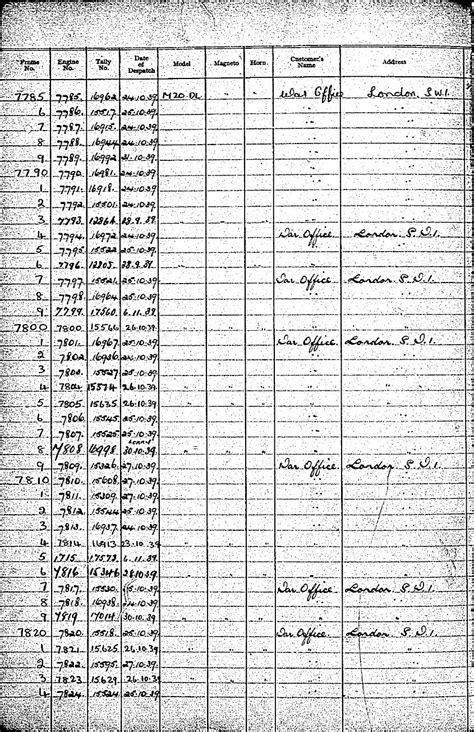 Frame No. Engine No. Tally No. Date of Despatch Model Magneto Horn. Customer's Name Address
7785 7785. 16962 24.10.39 M20.DL War Office London. S.W.1.
6 7786. 15517. 25.10.39
7 7787. 16915. 24.10.39
8 7788. 16944 24.10.39
9 7789. 16992 .10.39
7790 7790. 16981. 24.10.39
1 7791. 16918. 24.10.39
2 7792. 15501. 24.10.39
3 7793. 12864 28.9.39
4 7794. 16972 24.10.39 War Office. London. S.W.1.
5 7795. 15522 25.10.39
6 7796. 12803. 28.9.39
7 7797. 15521. 25.10.39 War Office. London. S.W.1.
8 7798. 16964 25.10.39
9 7799. 17560. 6.11.39
7800 7800. 15566 26.10.39
1 7801. 16967. 25.10.39 War Office. London. S.W.1.
2 7802. 16936. 24.10.39
3 7803. 15527 25.10.39
4 7804. 15574 26.10.39
5 7805. 15635 26.10.39
6 7806. 15545. 25.10.39
7 7807. 15525. 25.10.39
8 7808 16998 30.10.39
9 7809. 15326. 27.10.39 War Office. London. S.W.1.
7810 7810. 15608. 27.10.39
1 7811. 15309. 27.10.39
2 7812. 15544 25.10.39
3 7813. 16937. 24.10.39
4 7814 16913 23.10.39
5 17573. 6.11.39
6 7816 15346 .10.39
7 7817. 15530. 25.10.39 War Office. London. S.W.1.
8 7818. 16938. 24.10.39
9 7819 17014 30.10.39
7820 7820. 15518. 25.10.39 War Office. London. S.W.1.
1 7821. 15625. 26.10.39
2 7822. 15595. 27.10.39
3 7823 15629. 26.10.39
4 7824 15524 25.10.39